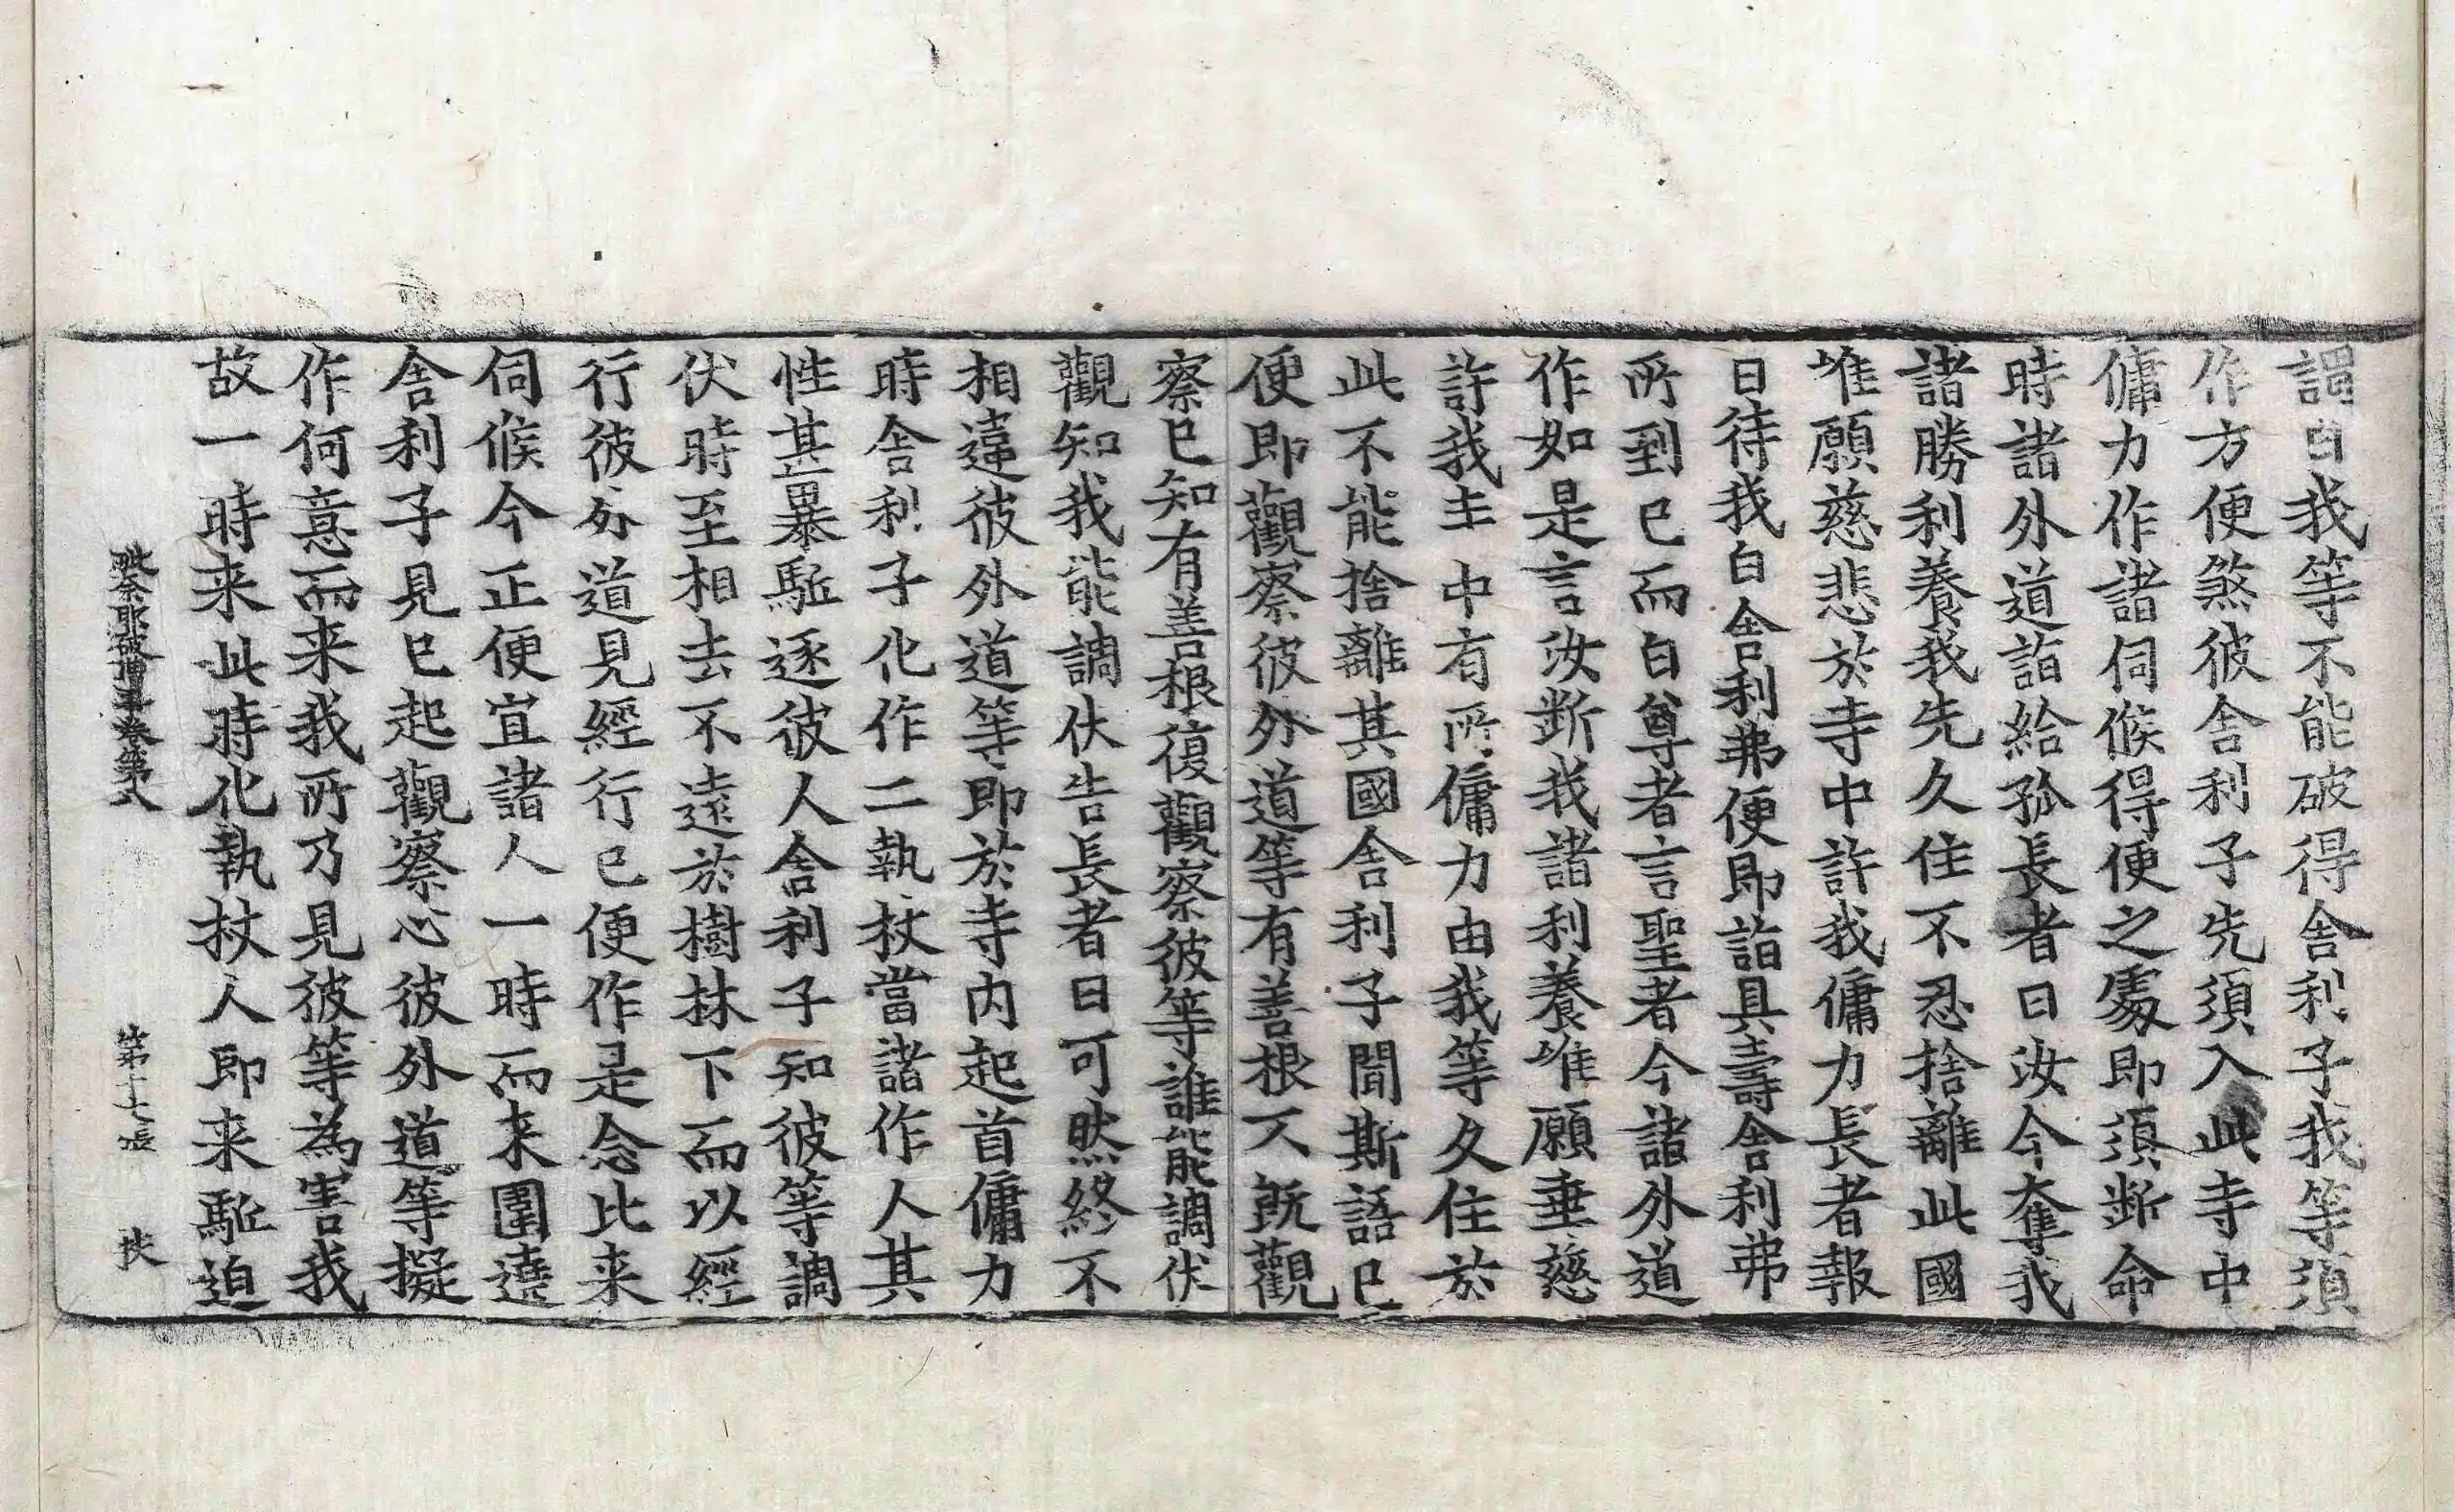 謂曰我等不能破得舍利子我等須
作方便煞彼舍利子先須入此寺中
傭力作諸伺候得便之處即須斷命
時諸外道詣給孤長者曰汝今奪我
諸勝利養我先久住不忍捨離此國
唯願慈悲於寺中許我傭力長者報
曰待我白舍利弗便即詣具壽舍利弗
所到已而白尊者言聖者今諸外道
作如是言汝斷我諸利養唯願垂慈
許我寺中有所傭力由我等久住於
此不能捨離其國舍利子聞斯語已
便即觀察彼外道等有善根不既觀
察已知有善根復觀察彼等誰能調伏
觀知我能調伏告長者曰可然終不
相違彼外道等即於寺内起首傭力
時舍利子化作二執杖當諸作人其
性甚麁暴駈逐彼人舍利子知彼等調
伏時至相去不遠於樹林下而以經
行彼外道見經行已便作是念比来
伺候今正便宜諸人一時而来圍遶
舍利子見已起觀察心彼外道等擬
作何意而来我所乃見彼等為害我
故一時来此時化執杖人即来駈迫
毗奈耶破僧事卷第八 第十七張 扶